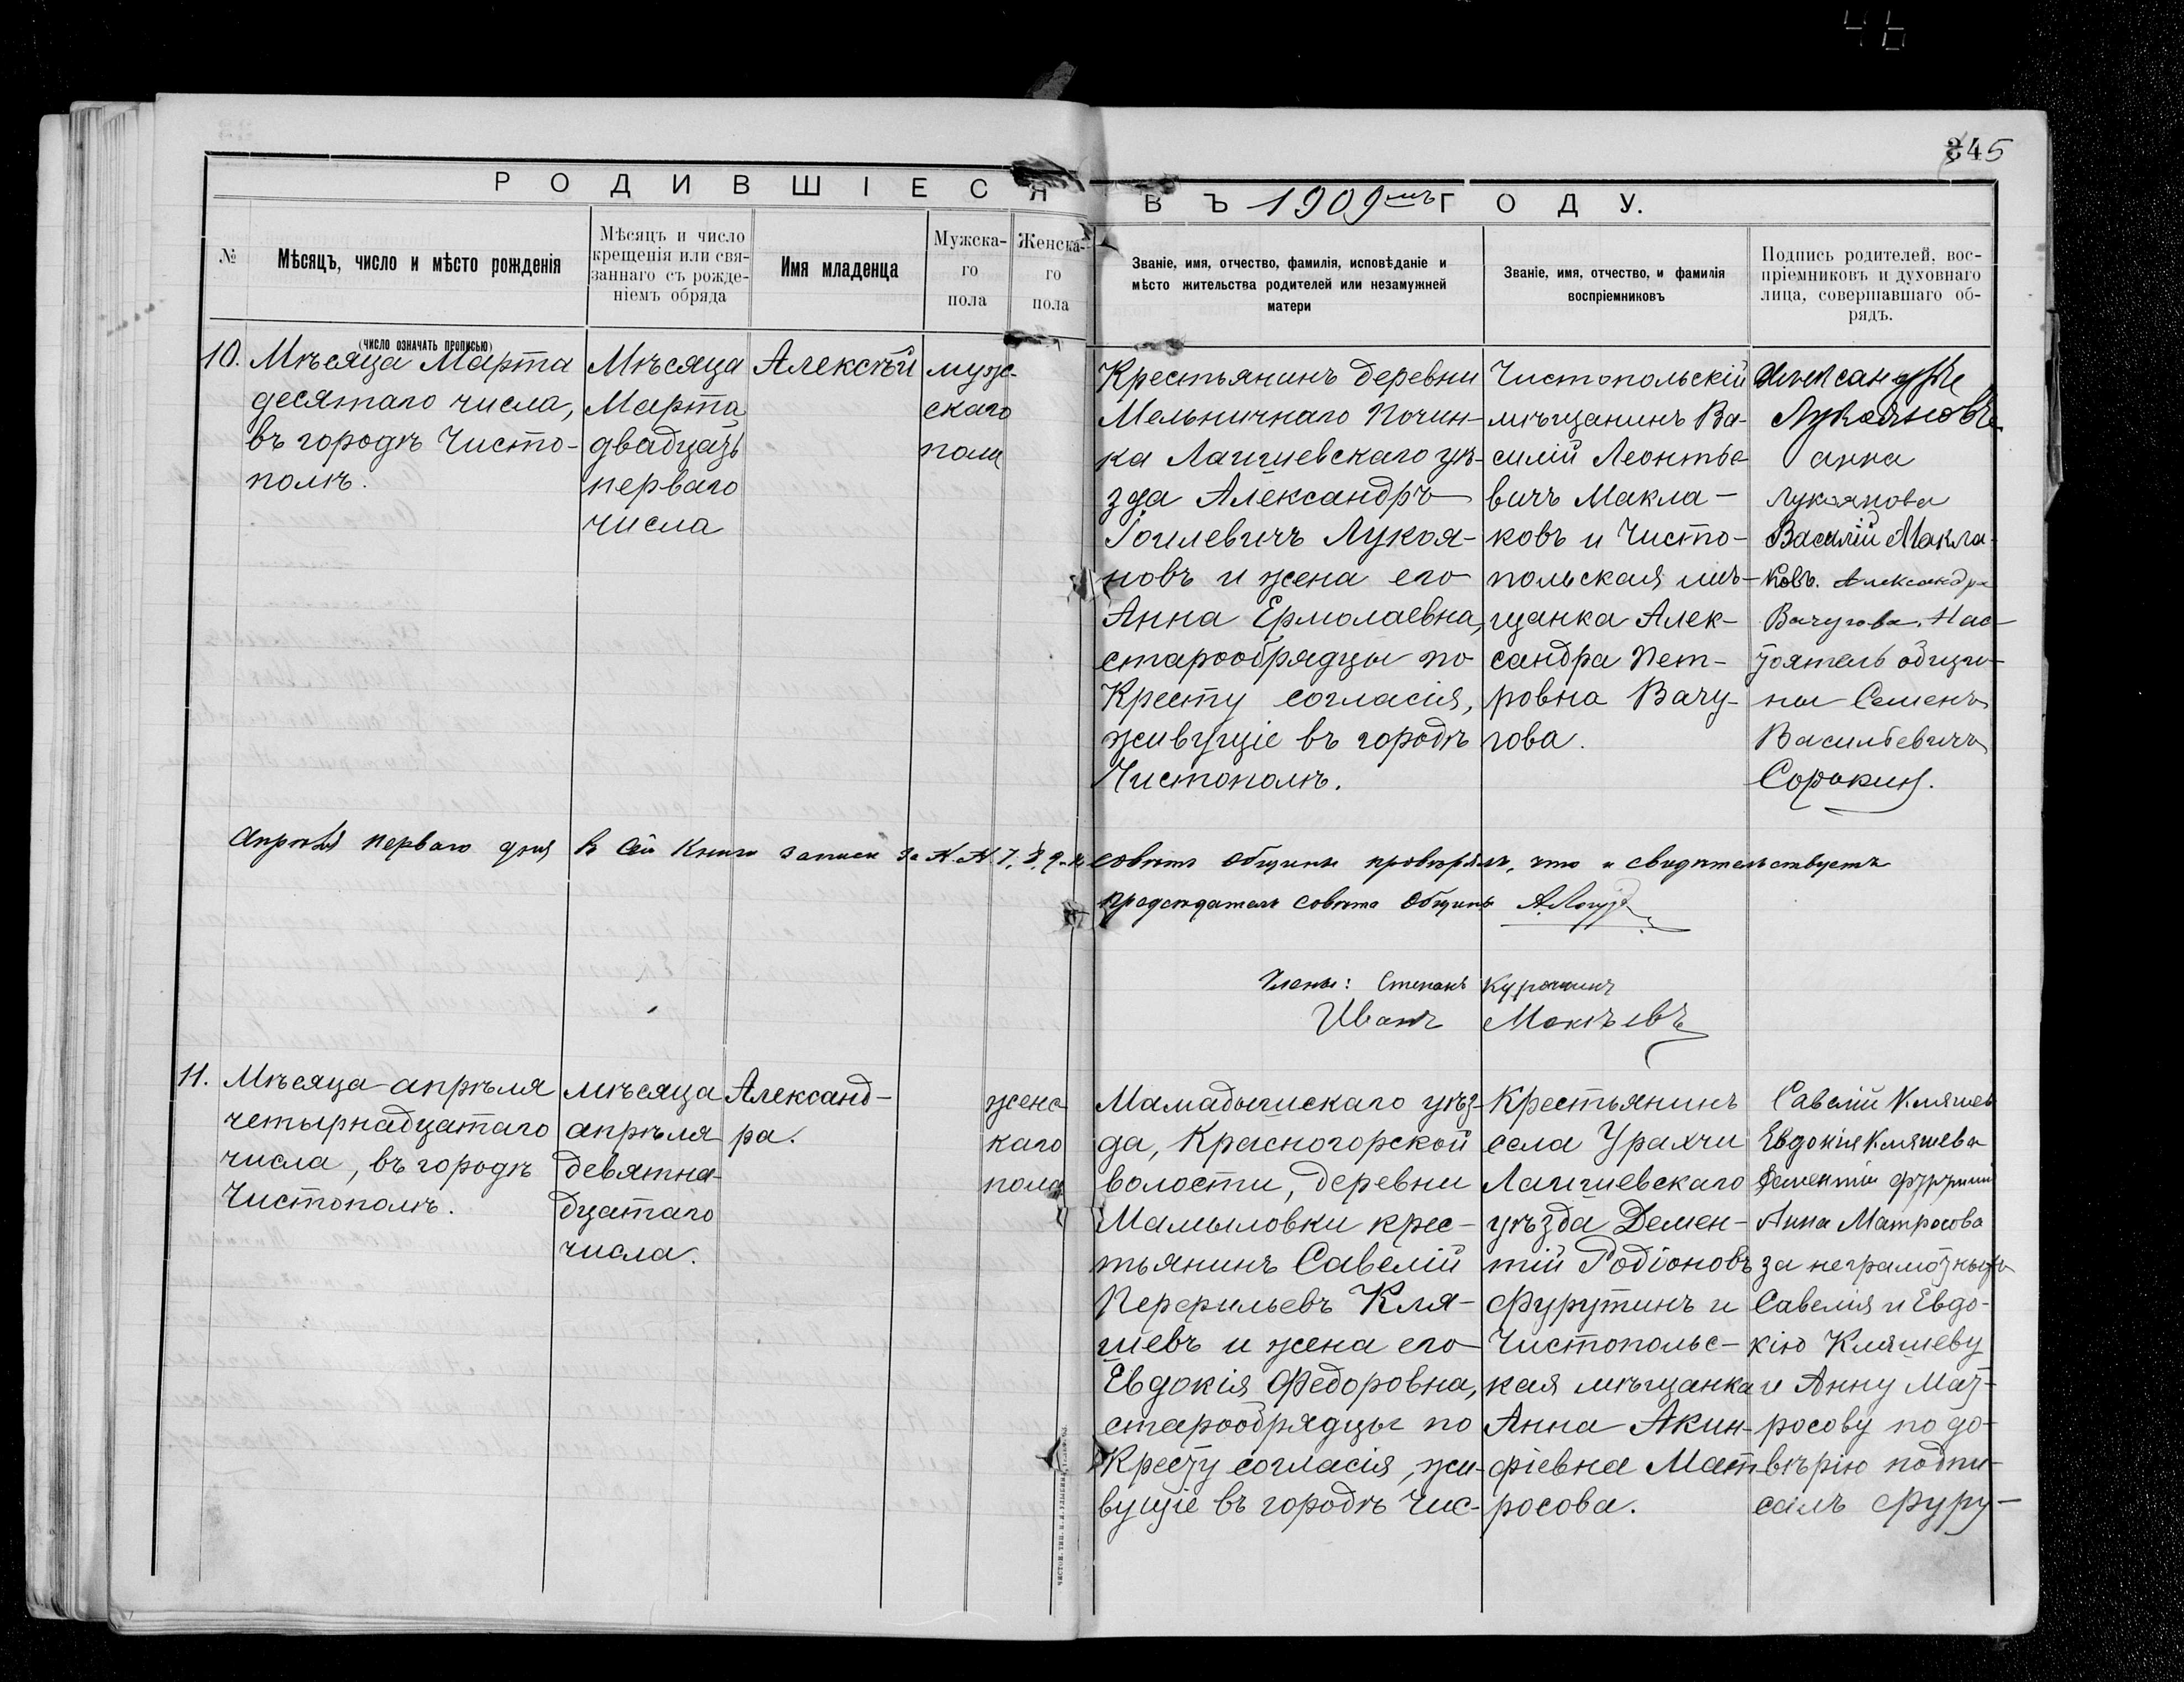 345
РОДИВШІЕСЯ ВЪ 1909мъ ГОДУ.
№
Мѣсяцъ, число и мѣсто рожденія
(число означать прописью)
Мѣсяцъ и число
крещенія или свя-
заннаго съ рожде-
ніемъ обряда
Имя младенца
Мужска-
го
пола
Женска-
го
пола
Званіе, имя, отчество, фамилія, исповѣданіе и
мѣсто жительства родителей или незамужней
матери
Званіе, имя, отчество, и фамилія
воспріемниковъ
Подпись родителей, вос-
пріемниковъ и духовнаго
лица, совершавшаго об-
рядъ.
10.
Мѣсяца Марта
десятаго числа,
въ городѣ Чисто-
полѣ.
Мѣсяца
Марта
двадцать
перваго
числа
Алексѣй
муж-
скаго
пола
Крестьянинъ деревни
Мельничнаго Почин-
ка Лаишевскаго уѣ-
зда Александръ
Іоилевичъ Лукоя-
новъ и жена его
Анна Ермолаевна,
старообрядцы по
Кресту согласія,
живущіе въ городѣ
Чистополѣ.
Чистопольскій
мѣщанинъ Ва-
силій Леонтье
вичъ Макла-
ковъ и Чисто-
польская мѣ-
щанка Алек-
сандра Пет-
ровна Вачу-
гова.
Александръ
Лукояновъ
анна
Лукоянова
Василій Макла-
ковъ. Александра
Вачугова. Нас-
тоятель общи-
ны Семенъ
Васильевичъ
Сорокин.
Апрѣля перваго дня в сей книге записи за N.N 7, 8, 9 и совѣтъ общины провѣрялъ, что и свидѣтельствуетъ
председатель совѣта общины
Члены: Степанъ Курочкинъ
Иванъ Мокѣевъ
11.
Мѣсяца апрѣля
четырнадцатаго
числа, въ городѣ
Чистополѣ.
мѣсяца
апрѣля
девятна-
дцатаго
числа.
Александ-
ра.
женс
каго
пола
Мамадышскаго уѣз-
да, Красногорской
волости, деревни
Мамыловки крес-
тьянинъ Савелій
Перфильевъ Кля-
шевъ и жена его
Евдокія Федоровна,
старообрядцы по
Кресту согласія, жи-
вущіе въ городѣ Чис-
Крестьянинъ
села Урахчи
Лаишевскаго
уѣзда Демен-
тій Родіоновъ
Фурутинъ и
Чистопольс-
кая мѣщанка
Анна Акин-
фіевна Мат-
росова.
Савелій Кляшев
Евдокія Кляшева
Дементій Фурутин
Анна Матросова
за неграмотныхъ
Савелія и Евдо-
кію Кляшеву
и Анну Мат-
росову по до-
вѣрію подпи-
салъ Фуру-